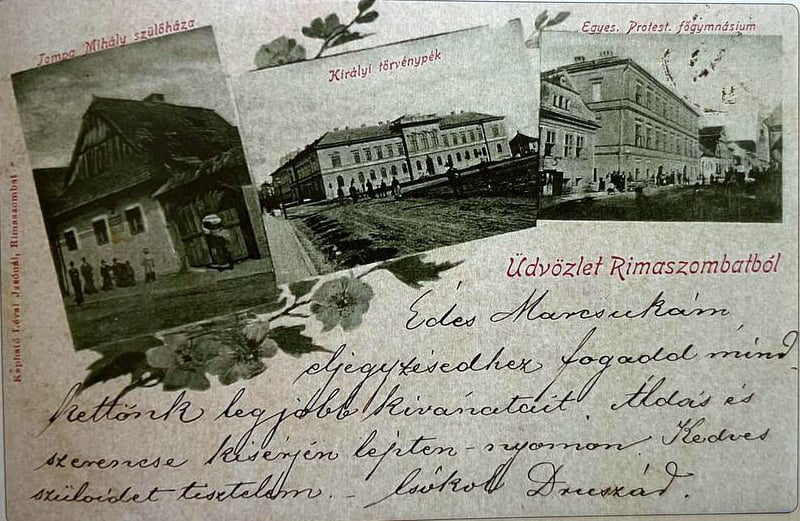 Tompa Mihály szülőháza
Királyi törvénypék
Egyes. Protest. főgymnásium
Kapható Lévai Izsónál, Rimaszombat
Üdvözlet Rimaszombatból
Édes Marcsukám
eljegyzésedhez fogadd mind-
kettőnk legjobb kivánatait. Áldás és
szerencse kisérjen lépten-nyomon. Kedves
szüleidet tisztelem. - Csókol Druszád.